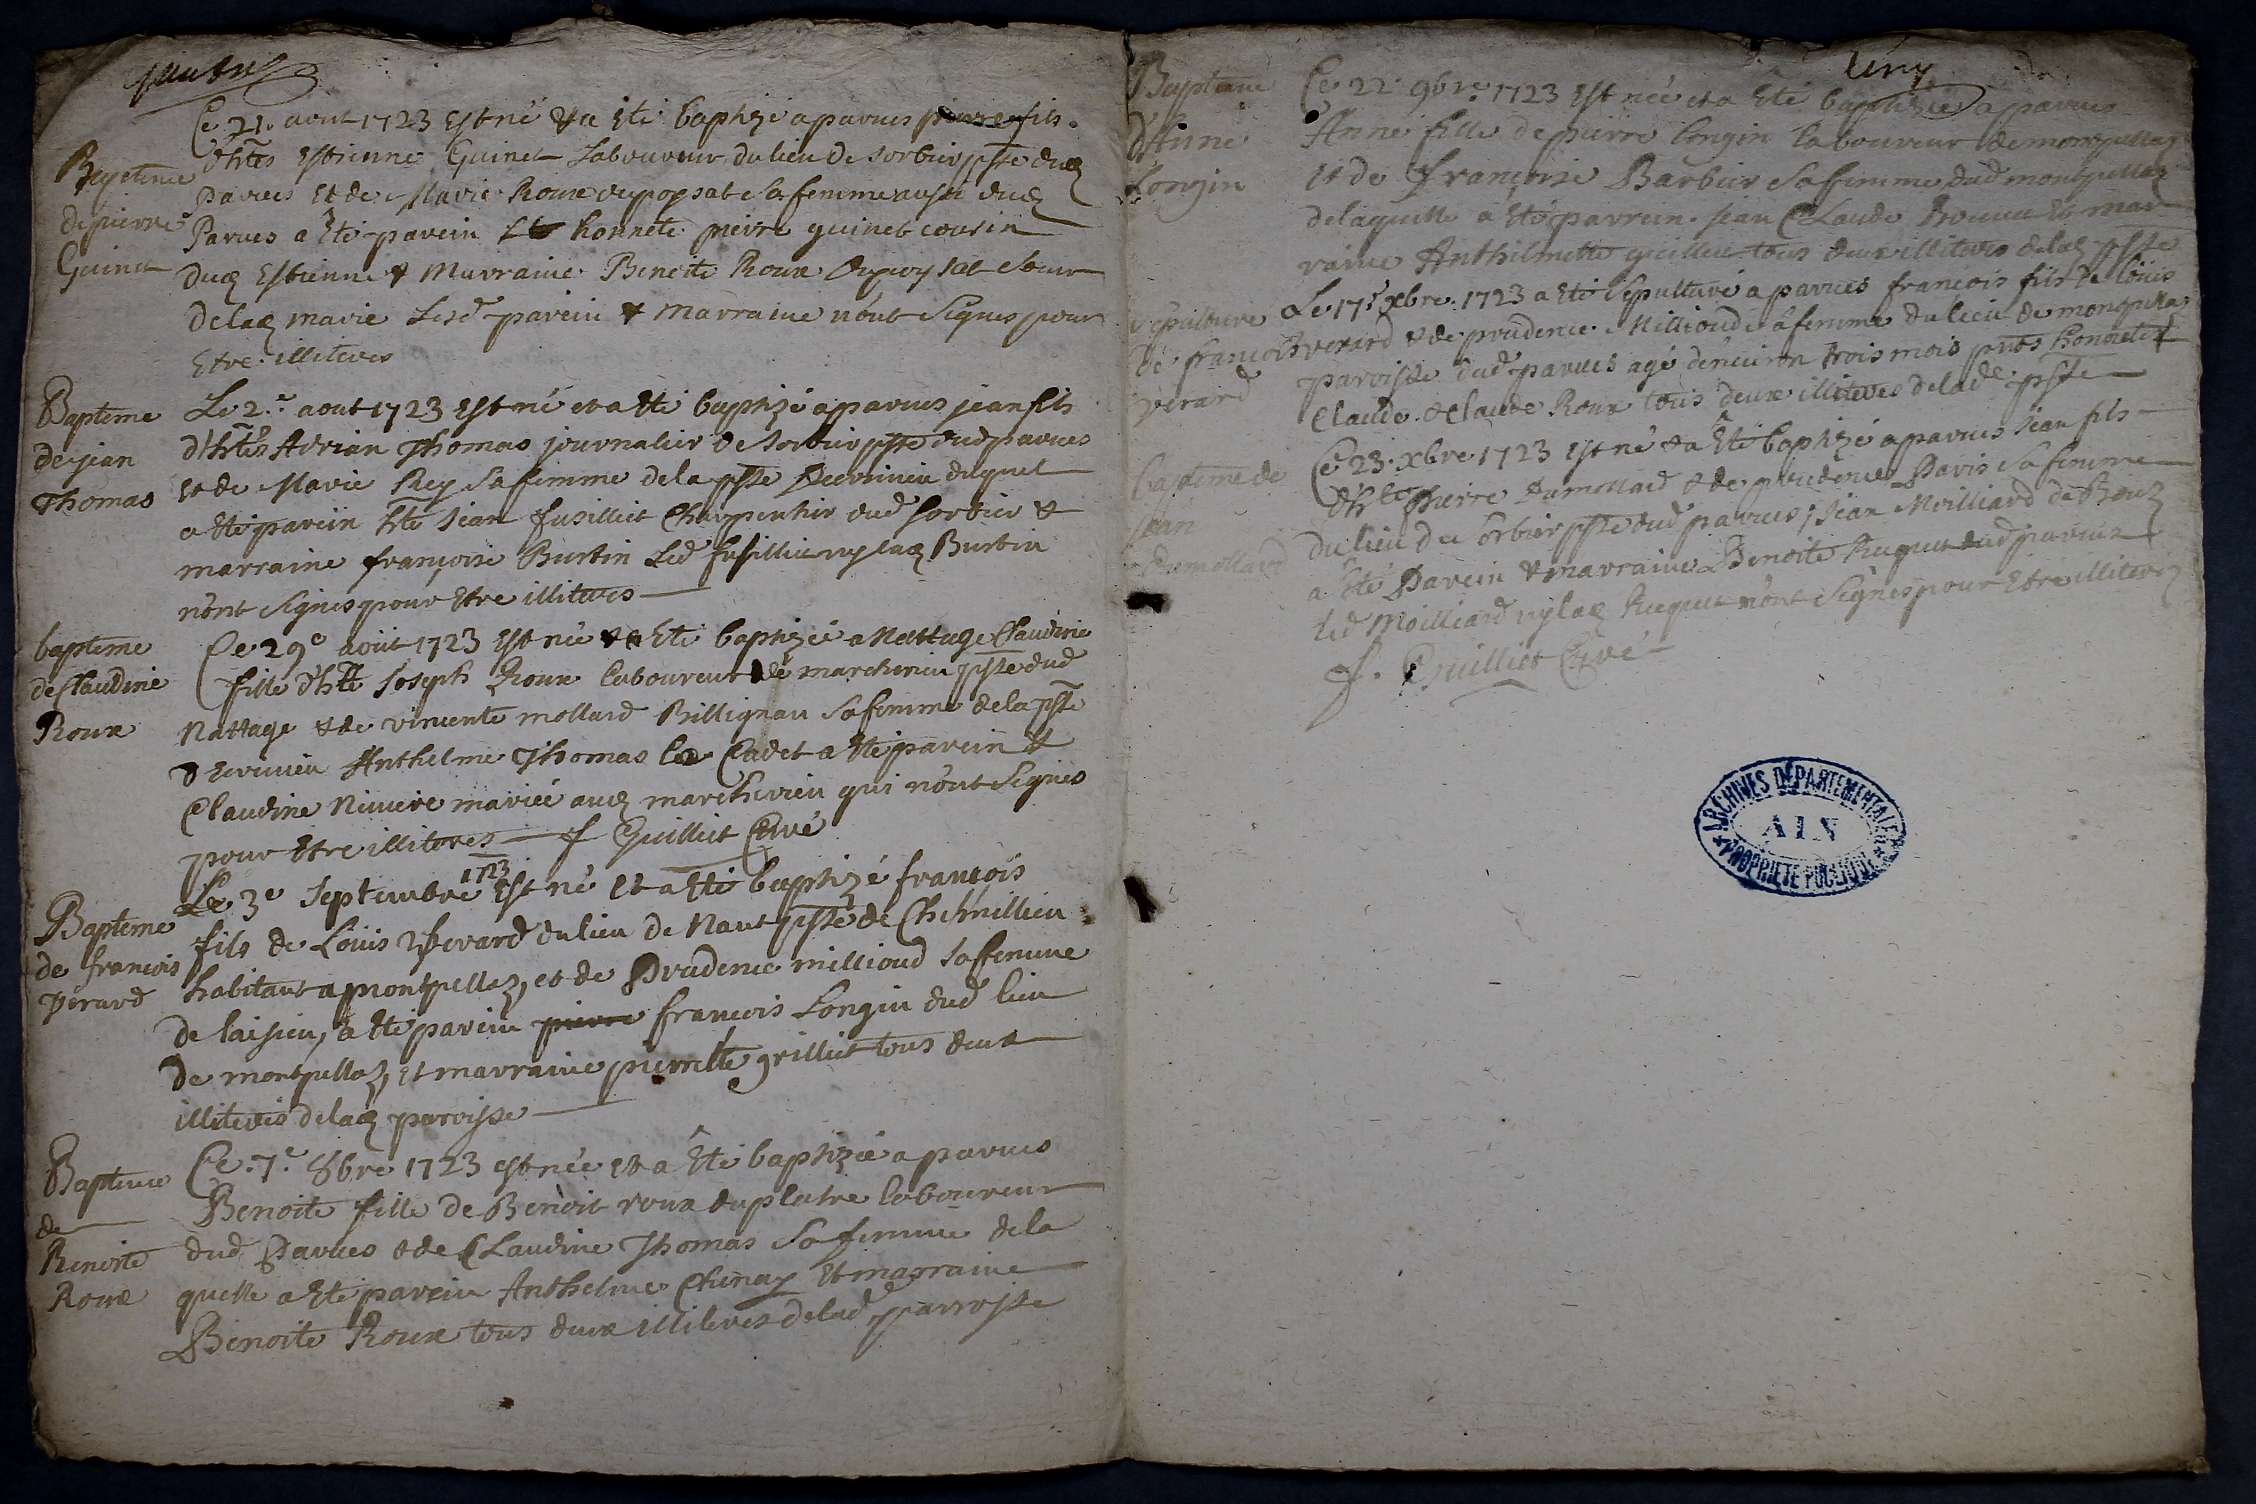 Ce 21. aout 1723 Est né & a Eté baptizé a parves pierre fils
d'hte Estienne Guinet Laboureur du lieu de sorbier psse dud
Baptême
parves et de Marie Roux sa femme aussi dud
de pierre
Parves a Eté parein honnête pierre guinet cousin
Guinet
dud Estienne & Marraine Benoite Roux soeur
de lad marie Lesd parein & marraine n'ont Signes pour
Etre illiteres
Baptême
Le 2.e aout 1723 Est né et a Eté baptizé a parves jean fils
de jean
d'hte Adrian Thomas journalier de sorbier psse dud parves
Thomas
et de Marie Rey Sa femme de la psse duquel
a Eté parein hte Jean fusilliet Charpentier dud sorbier &
marraine françoise Burtin Led fusilliet ny lad Burtin
n'ont signes pour Etre illiteres
baptême
Ce 29e août 1723 Est née & a Eté baptizée a Nattage Claudine
de Claudine
fille d'hte Joseph Roux laboureur de marcherieu psse dud
Roux
Nattage & de vincente mollard Billignan Sa femme de la psse
Anthelme Thomas le Cadet a Eté parein &
Claudine Niviere mariée aud marcherieu qui n'ont Signes
pour Etre illiteres f Guilliet Curé
1723
Le 3e Septembre Est né Et a Eté baptizé françois
Baptême
fils de Louis verard du lieu de Nant psse de Chemillieu
de françois
habitant a montpellaz, et de Prudence millioud Sa femme
verard
de laisieu, a Eté parein pierre françois Longin dud lieu
de montpellaz, et marraine pierrette grilliet tous deux
illiteres de lad paroisse
Baptême
Ce 7.e 8bre 1723 est née et a Eté baptizée a parves
de
Benoite fille de Benoit roux duplatre laboureur
Benoite
dud Parves & de Claudine Thomas Sa femme de la
Roux
quelle a Eté parein Anthelme Chinay Et marraine
Benoite Roux tous deux illiteres de lad parroisse
Baptême
Ce 22 9bre 1723 Est née et a Eté baptizée a parves
d'Anne
Anne fille de pierre longin laboureur de montpellaz
Longin
et de françoise Barbier Sa femme dud montpellaz
de laquelle a Eté parrein jean Claude & mar
raine Anthelmette tous deux illiteres de lad psse
sepulture
Le 17e xbre 1723 a Eté sepulturé a parves françois fils de louis
de françois
verard & de prudence Millioud sa femme du lieu de montpellaz
verard
paroisse dud parves agé d'environ trois mois
Claude & Claude Roux tous deux illiteres de lade psse
Baptême de
Ce 23. xbre 1723 Est né & a Eté baptizé a parves jean fils
jean
d'hte Pierre Dumollard & de prudence Pavis Sa femme
dumollard
du lieu de sorbier psse dud parves, jean Moilliard
a Eté Parein & marraine Benoite Ruquet dud parves
led Moilliard ny lad Ruquet n'ont Signes pour Etre illiteres
f. Guilliet Curé
ARCHIVES DÉPARTEMENTALES
AIN
PROPRIÉTÉ PUBLIQUE